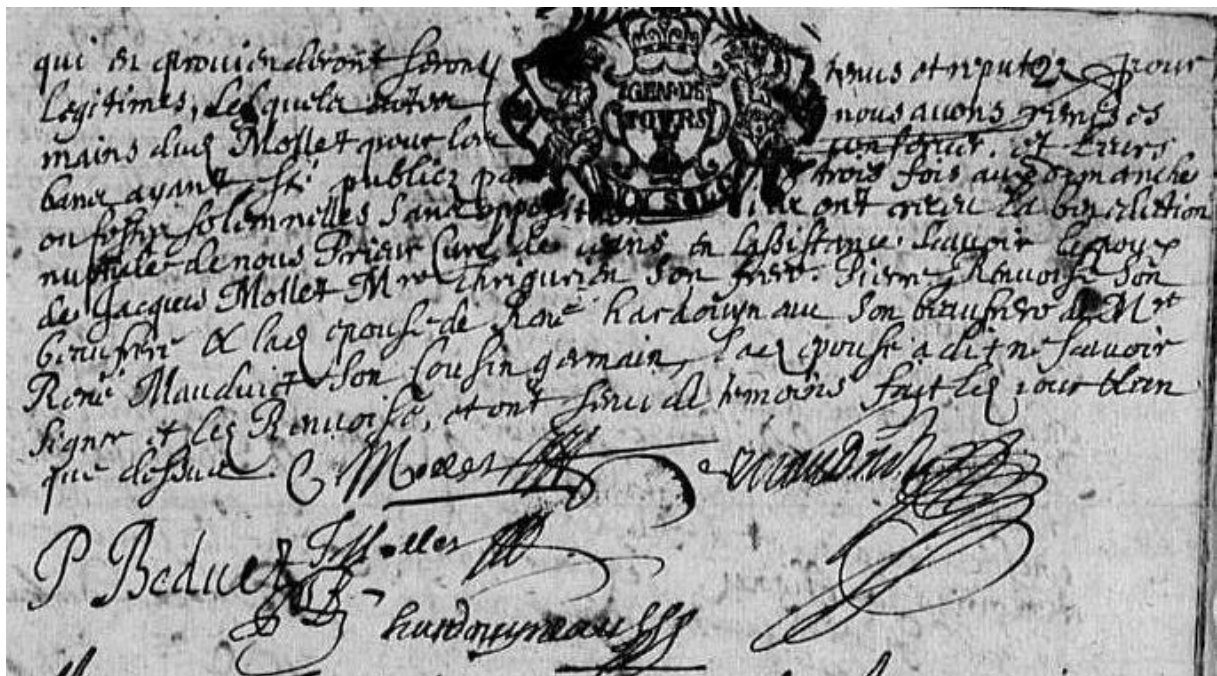 qui en proviendront seront tenus et reputez pour
GEN DE
legitimes, lesquela nous avons remises
POITIERS
mains dud Mollet pour et leurs
bancs ayant esté publiez par trois fois aux dimanche
SOLS
ou festes solemnelles sans opposition ont receu la benediction
nuptiale de nous Prieur Curé de ceans en lassistance scavoir lepoux
de Jacques Mollet Mre son frere, Pierre Renvoisé son
beaufrere & lad epouse de René hardouyneau son beaufrere de Mre
René Mauduict son cousin germain, lad epouse a dit ne scavoir
signer et led Renvoisé, et ont servi de temoins fait led jour & an
que dessus. C Mollet Mauduict
J Mollet
P Beduet
hardouyneau